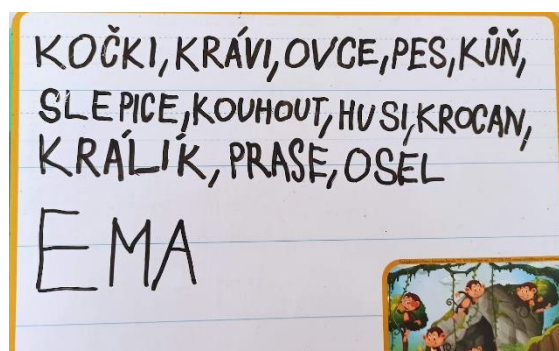 KOČKI, KRÁVI, OVCE, PES, KŮŇ,
SLEPICE, KOUHOUT, HUSI, KROCAN,
KRÁLÍK, PRASE, OSEL
EMA